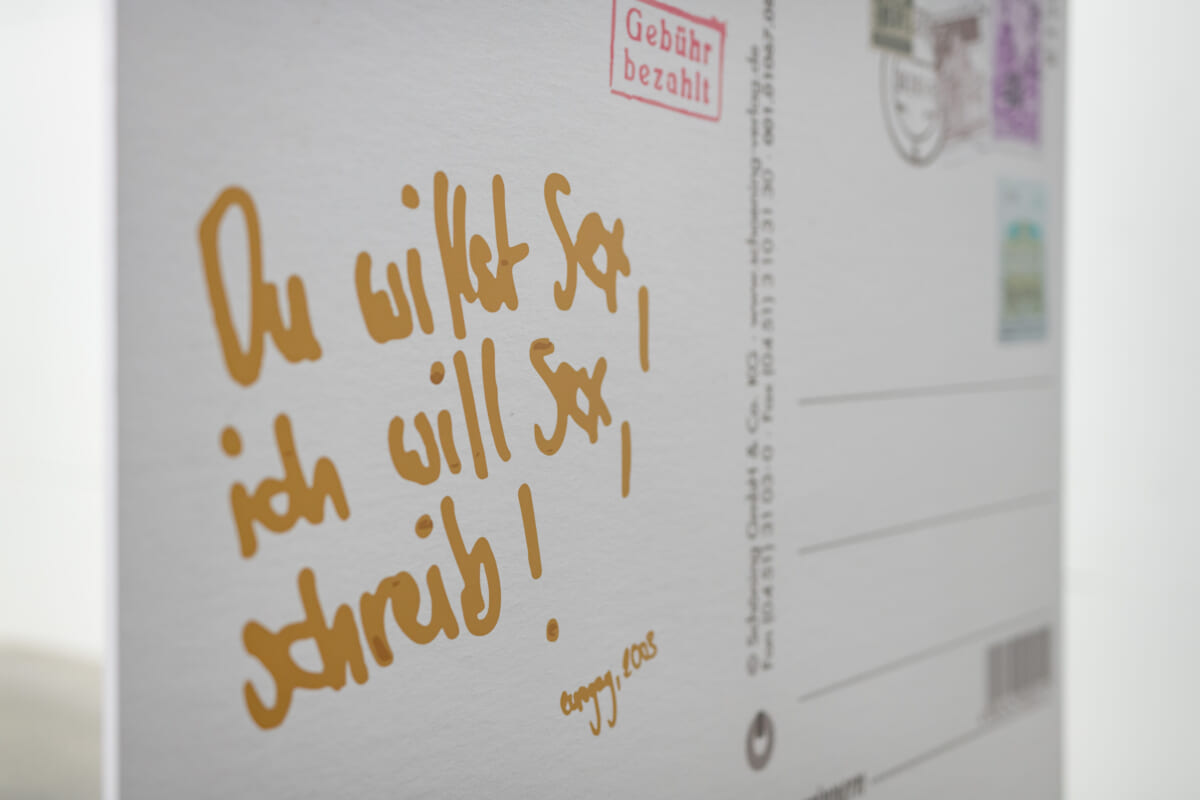 Gebühr
bezahlt
Du willst Sex,
ich will Sex,
schreib!
© Schöning GmbH & Co. KG · www.schoening-verlag.de
Fon (04 51) 3 1 03-0 · Fax (04 51) 3 10 31 30 ·